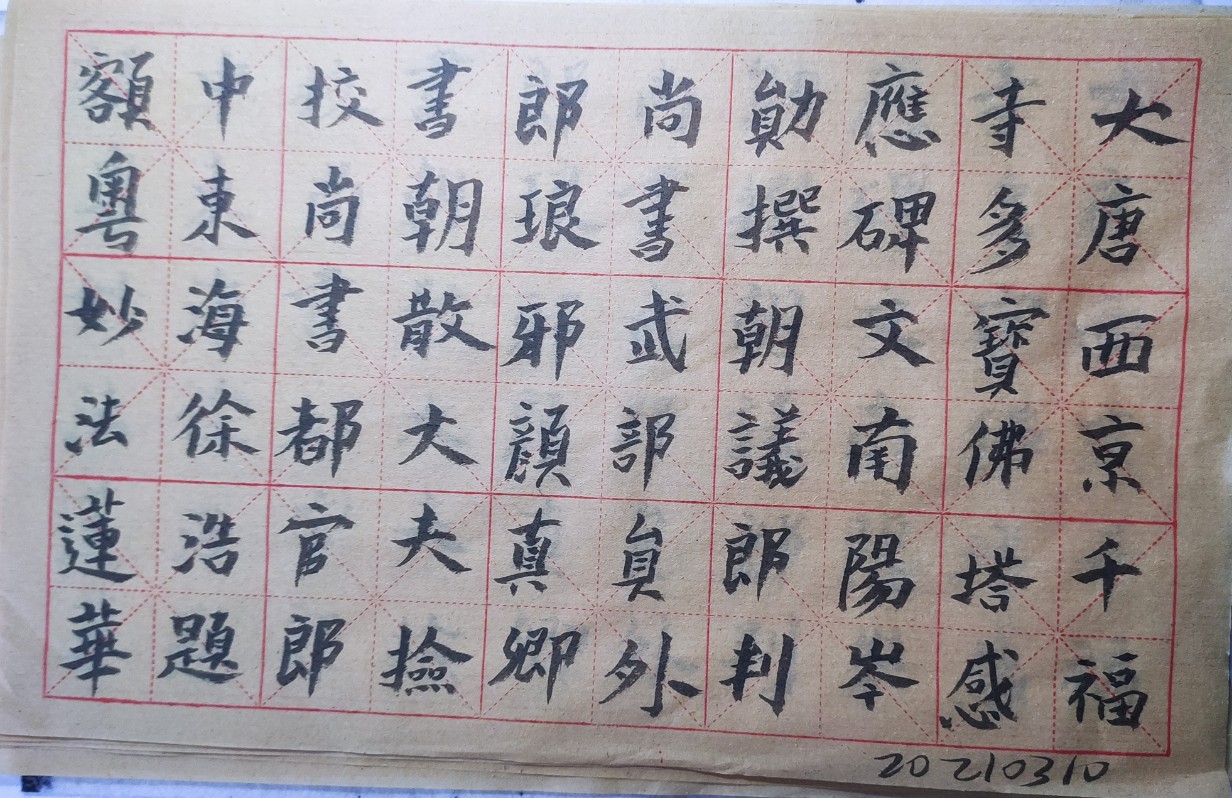 大唐西京千福
寺多寳佛塔感
應碑文南陽岑
勛撰朝議郎判
尚書武部貟外
郎琅邪顔真卿
書朝散大夫撿
挍尚書都官郎
中東海徐浩題
額粵妙法蓮華
20210310